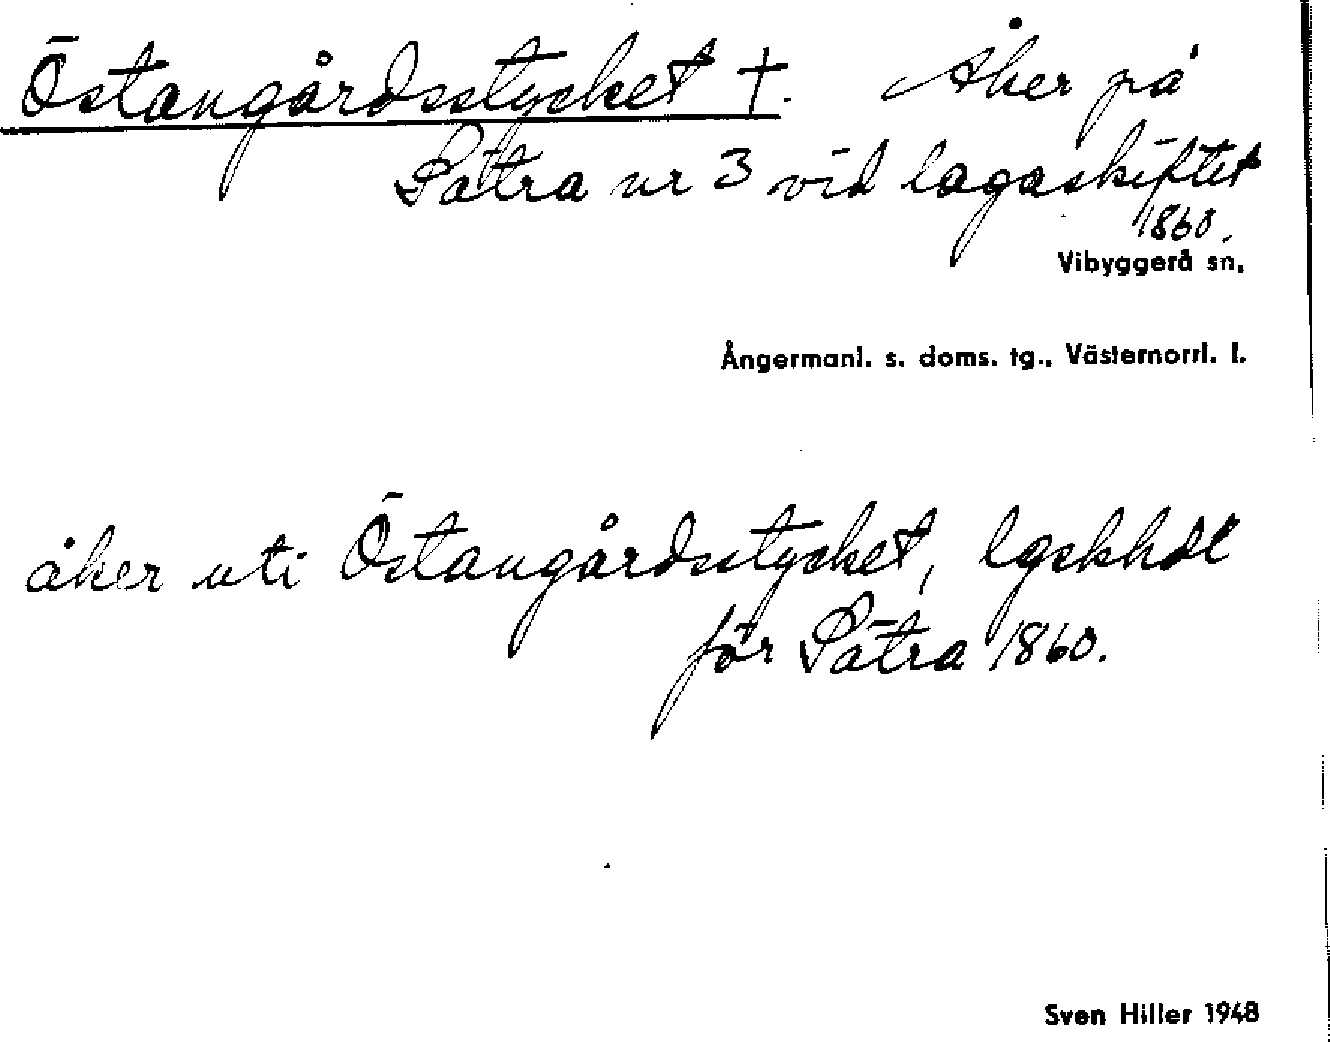 Östangårdsstycket †. Åker på
Sätra nr 3 vid lagaskiftet
1860.
Vibyggerå sn,
Ångermanl. s. doms. tg., Västernorrl. l.
åker uti Östangårdsstycket, lgskhdl
för Sätra 1860.
Sven Hiller 1948